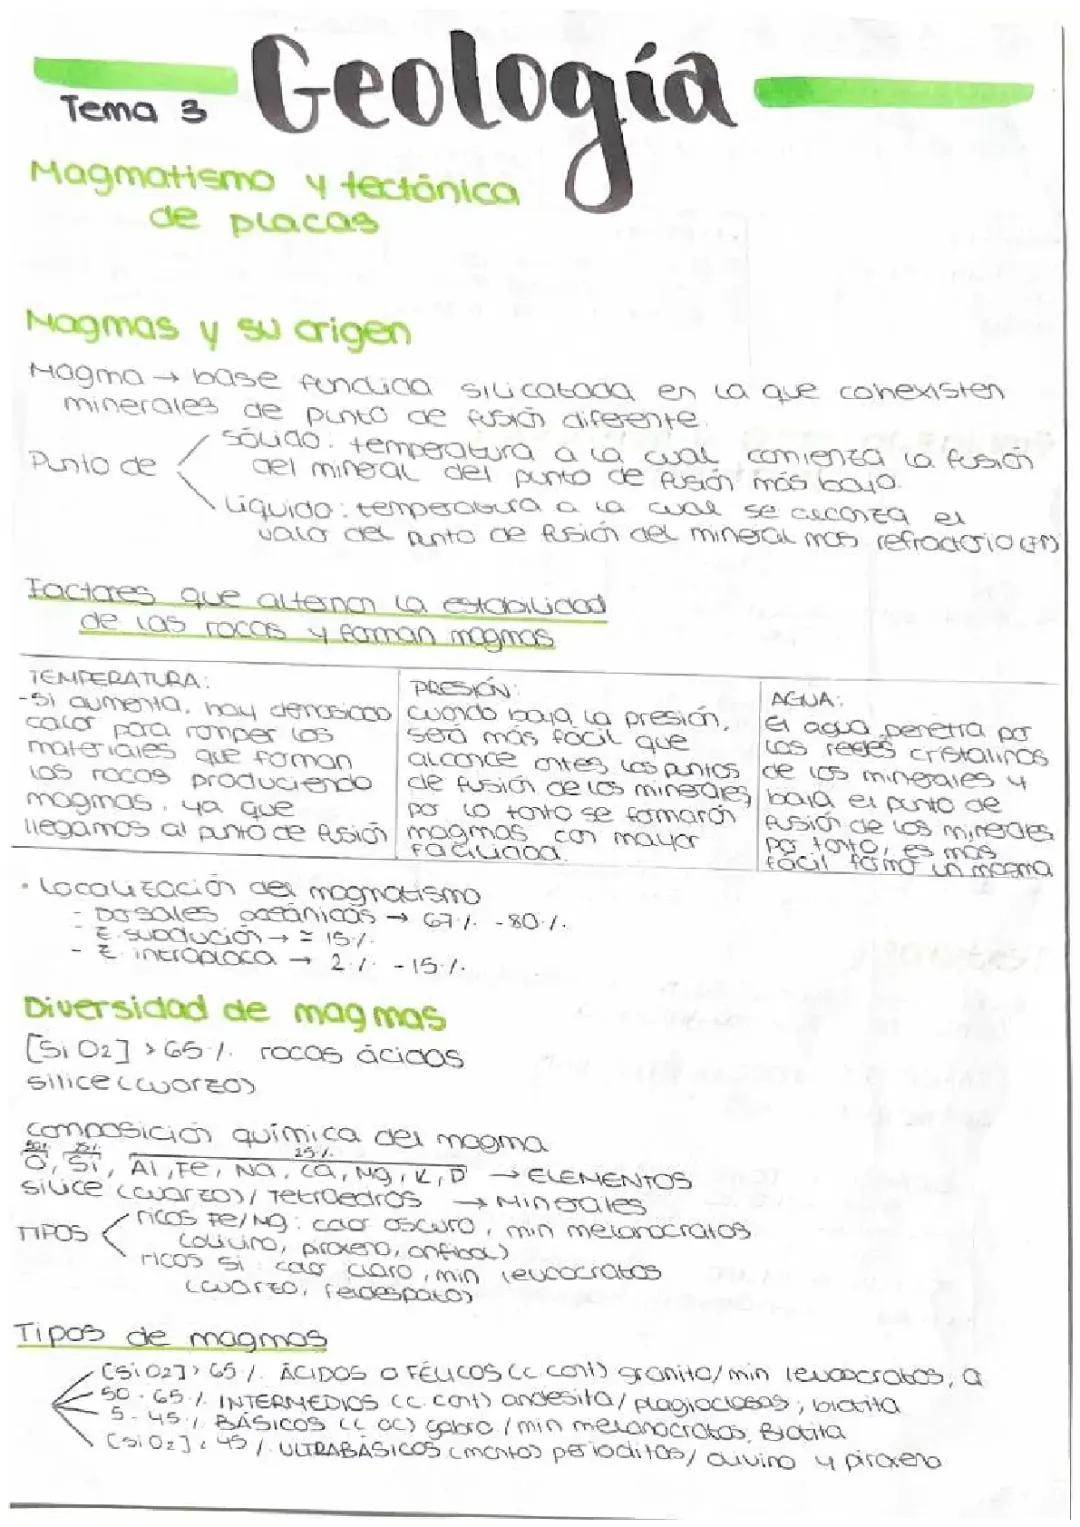 Geología
Tema 3
Magmatismo y tectónica
de placas
Magmas y su origen
Magma → base fundida silicatada en la que cohexisten
minerales de punto de fusión diferente.
Punto de
sólido: temperatura a la cual comienza la fusión
del mineral del punto de fusión más bajo.
líquido: temperatura a la cual se alcanza el
valor del punto de fusión del mineral mas refractario
Factores que alteran la estabilidad
de las rocas y forman magmas
TEMPERATURA:
-Si aumenta, hay demasiado
calor para romper los
materiales que forman
las rocas produciendo
magmas, ya que
llegamos al punto de fusión
PRESIÓN:
cuando baja la presión,
será más fácil que
alcance antes los puntos
de fusión de los minerales,
por lo tanto se formarán
magmas con mayor
facilidad.
AGUA:
el agua penetra por
las redes cristalinas
de los minerales y
baja el punto de
fusión de los minerales
por tanto, es más
fácil formar un magma
· Localización del magmatismo
- Dorsales oceánicas → 67% - 80%.
- Z. subdución → ≃ 15%.
- Z. intraplaca → 2% - 15%.
Diversidad de magmas
[SiO2] > 65%. rocas ácidas
silice (cuarzo)
composición química del magma
50% 25% 25%
O, Si, Al, Fe, Na, Ca, Mg, K, → ELEMENTOS
silice (cuarzo) / Tetraedros → Minerales
TIPOS
ricos Fe/Mg: color oscuro, min melanocratos
(olivino, piroxeno, anfibol)
ricos Si: color claro, min leucocratos
(cuarzo, feldespato)
Tipos de magmas
[SiO2] > 65%. ÁCIDOS O FÉLICOS (c. cont) granito/min leucocratos, Q
50 - 65%. INTERMEDIOS (c. cont) andesita/ plagioclasas, biotita
5 - 45%. BÁSICOS (c oc) gabro/min melanocratos, Biotita
[SiO2] < 45%. ULTRABÁSICOS (manto) perioditas/ olivino y piroxeno